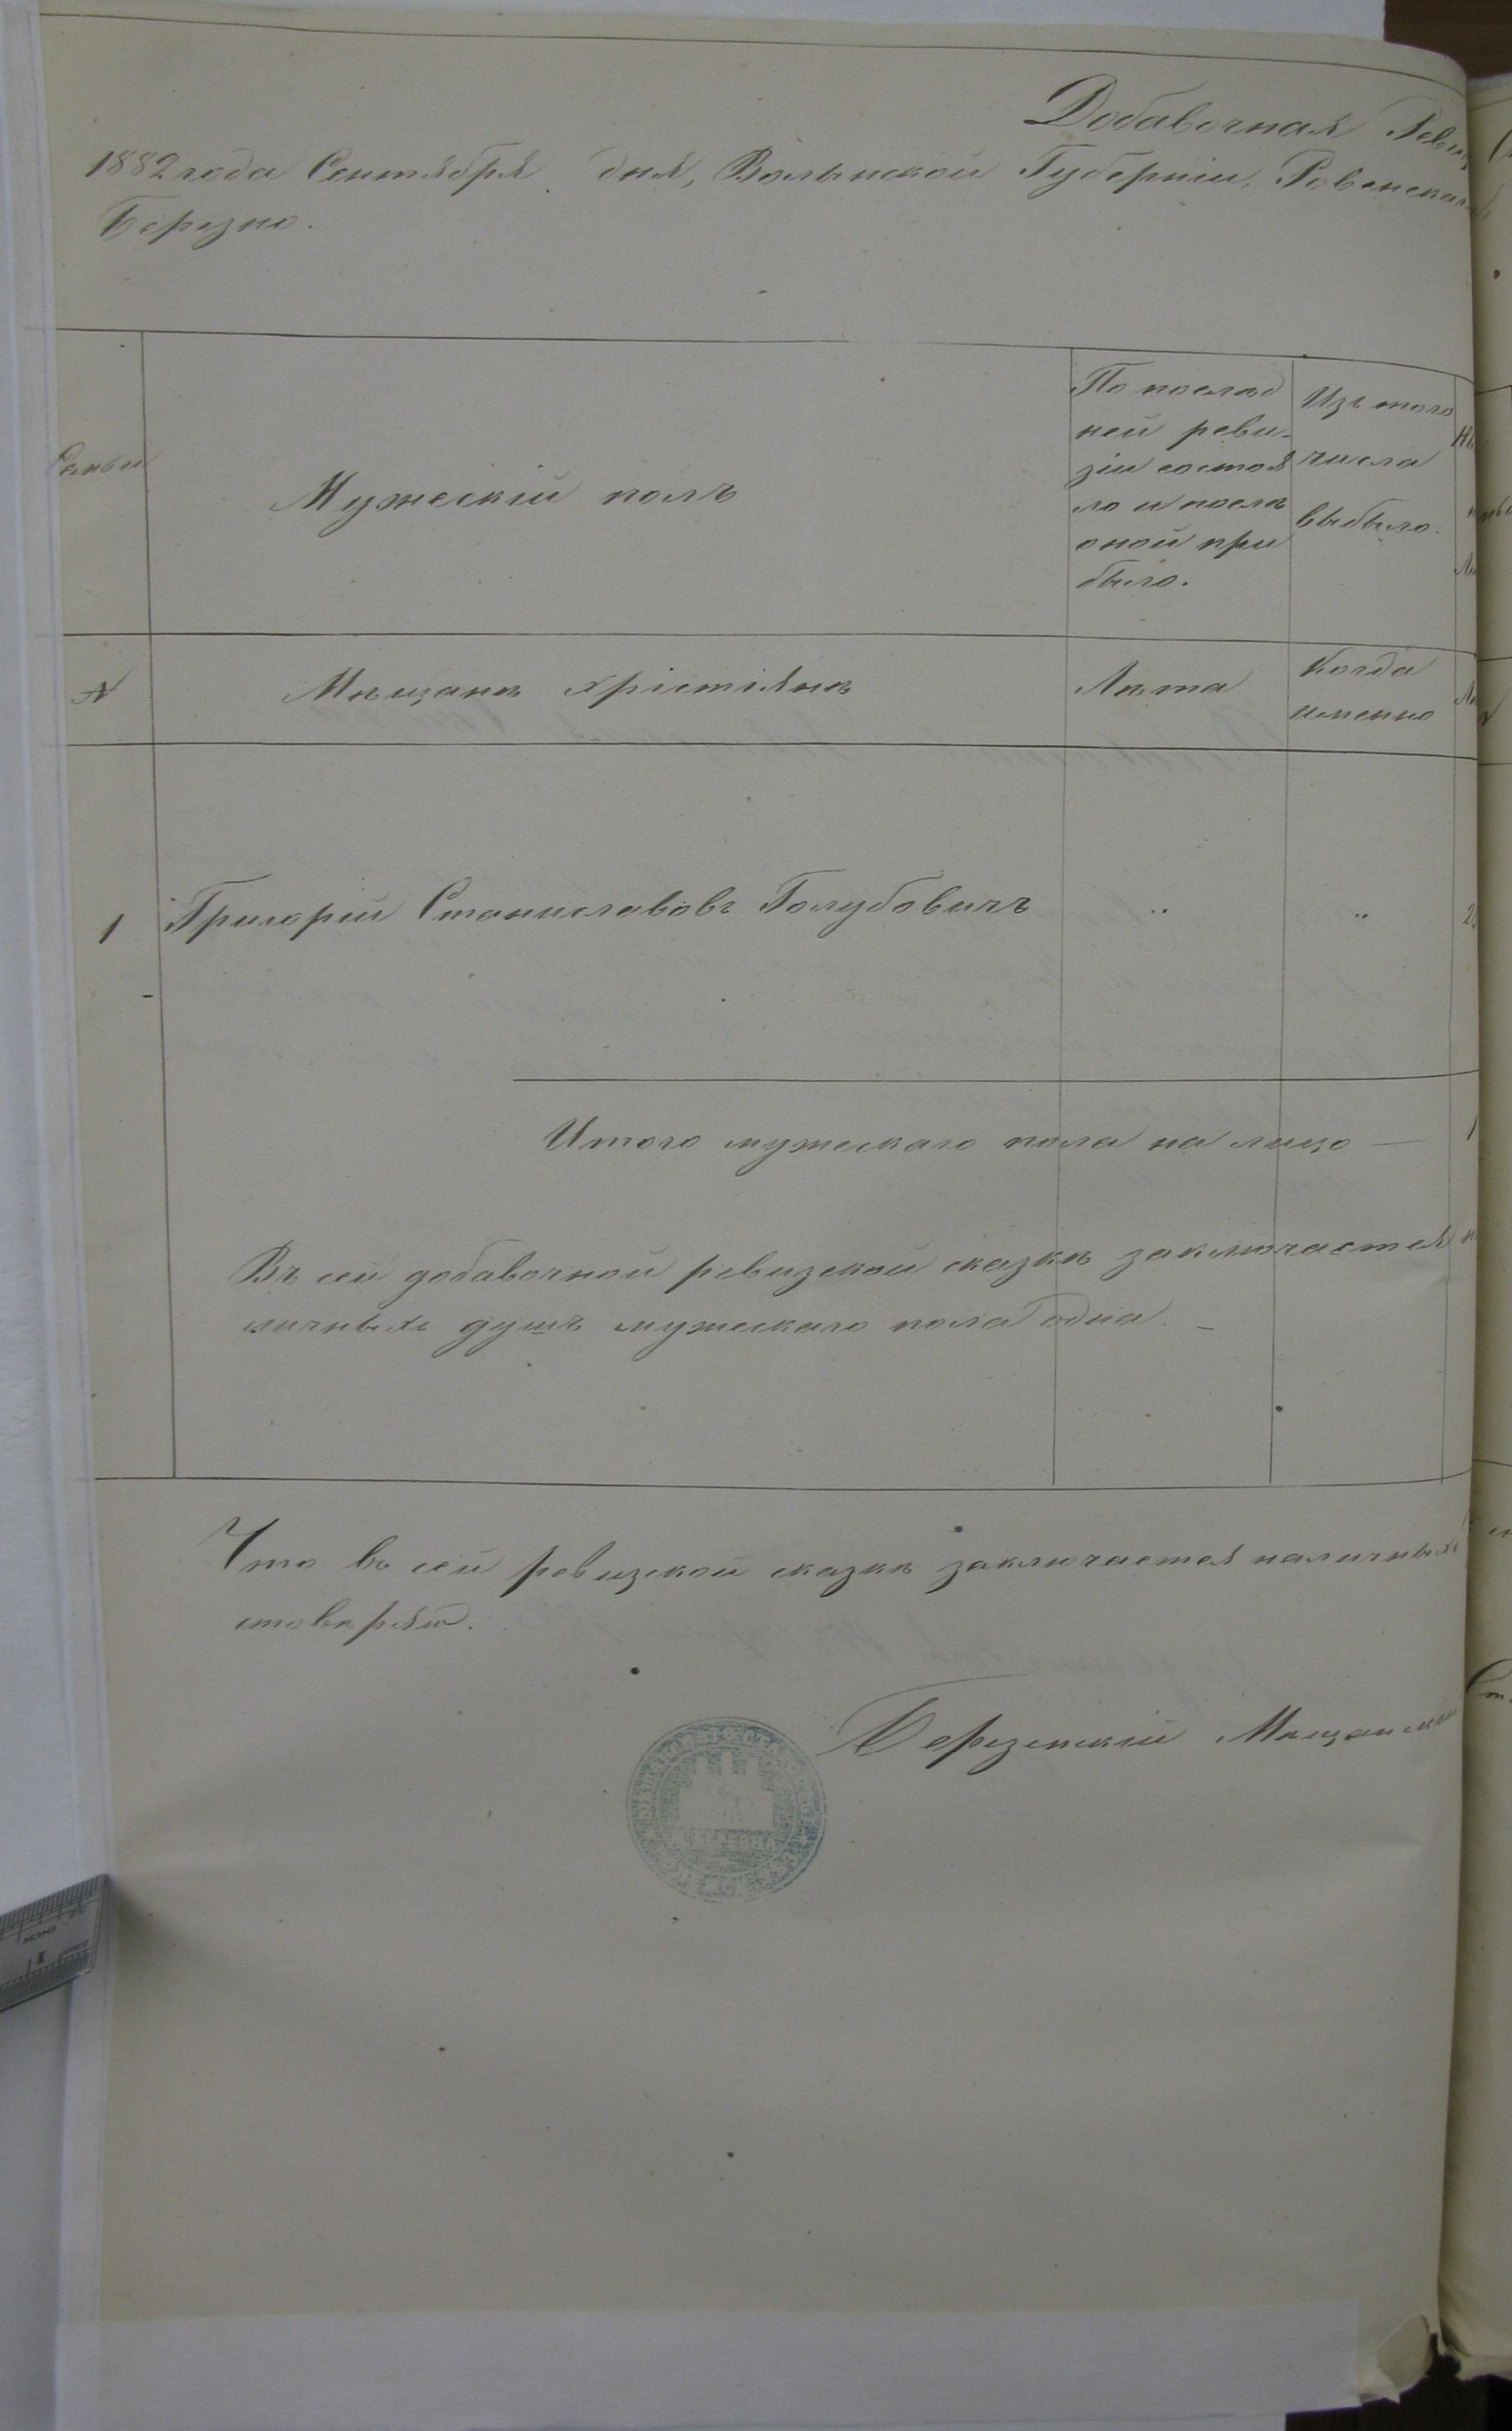 Добавочная Ревиз
1882 года Сентября дня, Волынской Губерніи, Ровенскаго
Березно.
Семьи
Мужескій полъ
По послѣд
ней реви-
зіи состоя
ло и послѣ
оной при
было.
Изъ того
числа
выбыло.
№
Мѣщане христіяне
Лѣта
Когда
именно
1
Григорій Станиславовъ Голубовичъ
"
"
2
Итого мужескаго пола на лицо — 1
Въ сей добавочной ревизской сказкѣ заключается н
личныхъ душъ мужескаго пола одна. –
Что въ сей ревизской сказкѣ заключается наличныхъ
стовѣряю.
Березскій Мѣщанскій